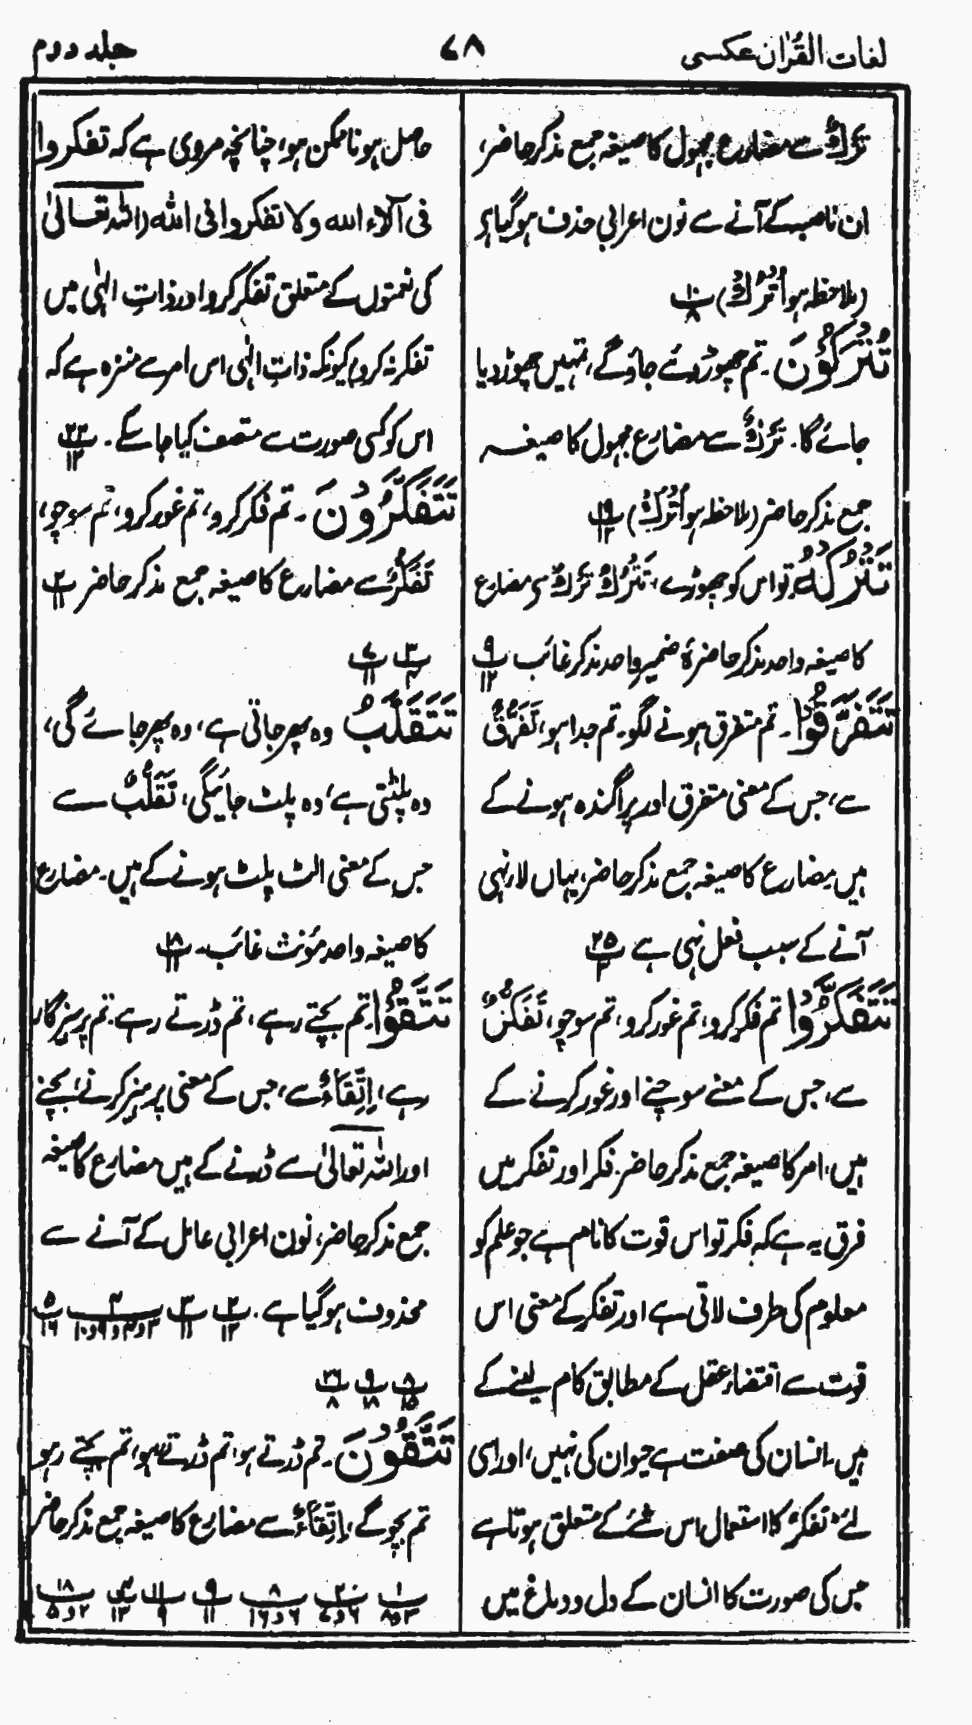 لغات القرآن عکسی
۷۸
جلد دوم
تَرْكٌ سے مضارع مجہول کا صیغہ جمع مذکر حاضر،
ان ناصبہ کے آنے سے نون اعرابی حذف ہو گیا ہے
(ملاحظہ ہو اُتْرُكْ) پ ۱۰ ۸
تُتْرَكُوْنَ۔ تم چھوڑ دئے جاؤ گے، تمہیں چھوڑ دیا
جائے گا۔ تَرْكٌ سے مضارع مجہول کا صیغہ
جمع مذکر حاضر (ملاحظہ ہو اُتْرُكْ) پ ۱۹ ۱۲
تَتْرُكْهُ۔ تو اس کو چھوڑے، تَتْرُكْ تَرْكٌ سے مضارع
کا صیغہ واحد مذکر حاضر ہٗ ضمیر واحد مذکر غائب پ ۹ ۱۲
تَتَفَرَّقُوْا۔ تم متفرق ہونے لگو۔ تم جدا ہو، تَفَرُّقٌ
سے، جس کے معنی متفرق اور پراگندہ ہونے کے
ہیں مضارع کا صیغہ جمع مذکر حاضر، یہاں لار نہی
آنے کے سبب فعل نہی ہے پ ۲۵ ۳
تَتَفَكَّرُوْا تم فکر کرو، تم غور کرو، تم سوچو، تَفَكُّرٌ
سے، جس کے معنے سوچنے اور غور کرنے کے
ہیں، امر کا صیغہ جمع مذکر حاضر۔ فکر اور تفکر میں
فرق یہ ہے کہ فکر تو اس قوت کا نام ہے جو علم کو
معلوم کی طرف لاتی ہے اور تفکر کے معنی اس
قوت سے اقتضاء عقل کے مطابق کام لینے کے
ہیں۔ انسان کی صفت ہے حیوان کی نہیں، اور اسی
لئے، تفکر، کا استعمال اس شے کے متعلق ہوتا ہے
جس کی صورت کا انسان کے دل و دماغ میں
حاصل ہونا ممکن ہو، چنانچہ مروی ہے کہ تفکروا
فی آلاء الله ولا تفکروا فی الله (اللہ تعالیٰ
کی نعمتوں کے متعلق تفکر کرو اور ذاتِ الٰہی میں
تفکر نہ کرو) کیونکہ ذاتِ الٰہی اس امر سے منزہ ہے کہ
اس کو کسی صورت سے متصف کیا جا سکے۔ پ ۲۲ ۱۲
تَتَفَكَّرُوْنَ۔ تم فکر کرو، تم غور کرو، تم سوچو،
تَفَكُّرٌ سے مضارع کا صیغہ جمع مذکر حاضر پ ۲ ۱۱
پ ۳ ۴ پ ۷ ۱۱
تَتَقَلَّبُ وہ پھر جاتی ہے، وہ پھر جائے گی،
وہ پلٹتی ہے، وہ پلٹ جائیگی، تَقَلُّبٌ سے
جس کے معنی الٹ پلٹ ہونے کے ہیں۔ مضارع
کا صیغہ واحد مؤنث غائب۔ پ ۱۸ ۱۱
تَتَّقُوْا۔ تم بچتے رہے، تم ڈرتے رہے۔ تم پرہیزگار
رہے، اِتِّقَاءٌ سے، جس کے معنی پرہیز کرنے، بچنے
اور اللہ تعالیٰ سے ڈرنے کے ہیں مضارع کا صیغہ
جمع مذکر حاضر، نون اعرابی عامل کے آنے سے
محذوف ہو گیا ہے۔ پ ۲ ۱۲ پ ۳ ۱۱ پ ۴ ۳و۴و۹و۱۰ پ ۵ ۱۶
پ ۸ ۱۵ پ ۹ ۱۸ پ ۲۶ ۸
تَتَّقُوْنَ۔ تم ڈرتے ہو، تم ڈرتے رہو، تم بچتے رہو
تم بچو گے، اِتِّقَاءٌ سے مضارع کا صیغہ جمع مذکر حاضر
پ ۱ ۳و۸ پ ۲ ۶و۷ پ ۸ ۶و۱۶ پ ۹ ۱۱ پ ۱۱ ۹ ۱۳ پ ۱۸ ۲و۵